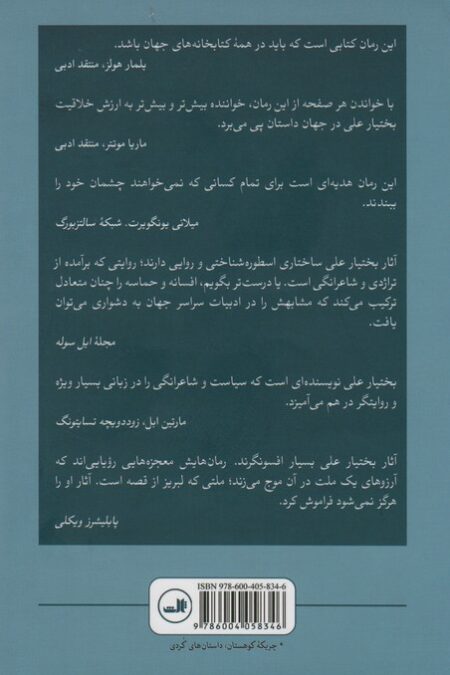 این رمان کتابی است که باید در همهٔ کتابخانه‌های جهان باشد.
یلمار هولز، منتقد ادبی
با خواندن هر صفحه از این رمان، خواننده بیش‌تر و بیش‌تر به ارزش خلاقیت
بختیار علی در جهان داستان پی می‌برد.
ماریا موتنر، منتقد ادبی
این رمان هدیه‌ای است برای تمام کسانی که نمی‌خواهند چشمان خود را
ببندند.
میلانی یونگویرت. شبکهٔ سالتزبورگ
آثار بختیار علی ساختاری اسطوره‌شناختی و روایی دارند؛ روایتی که برآمده از
تراژدی و شاعرانگی است. یا درست‌تر بگویم، افسانه و حماسه را چنان متعادل
ترکیب می‌کند که مشابهش را در ادبیات سراسر جهان به دشواری می‌توان
یافت.
مجلهٔ ابل سوله
بختیار علی نویسنده‌ای است که سیاست و شاعرانگی را در زبانی بسیار ویژه
و روایتگر در هم می‌آمیزد.
مارتین ابل، زوددویچه تسایتونگ
آثار بختیار علی بسیار افسونگرند. رمان‌هایش معجزه‌هایی رؤیایی‌اند که
آرزوهای یک ملت در آن موج می‌زند؛ ملتی که لبریز از قصه است. آثار او را
هرگز نمی‌شود فراموش کرد.
پابلیشرز ویکلی
ISBN 978-600-405-834-6
ثالث
9 786004 058346
* چریکهٔ کوهستان؛ داستان‌های کُردی